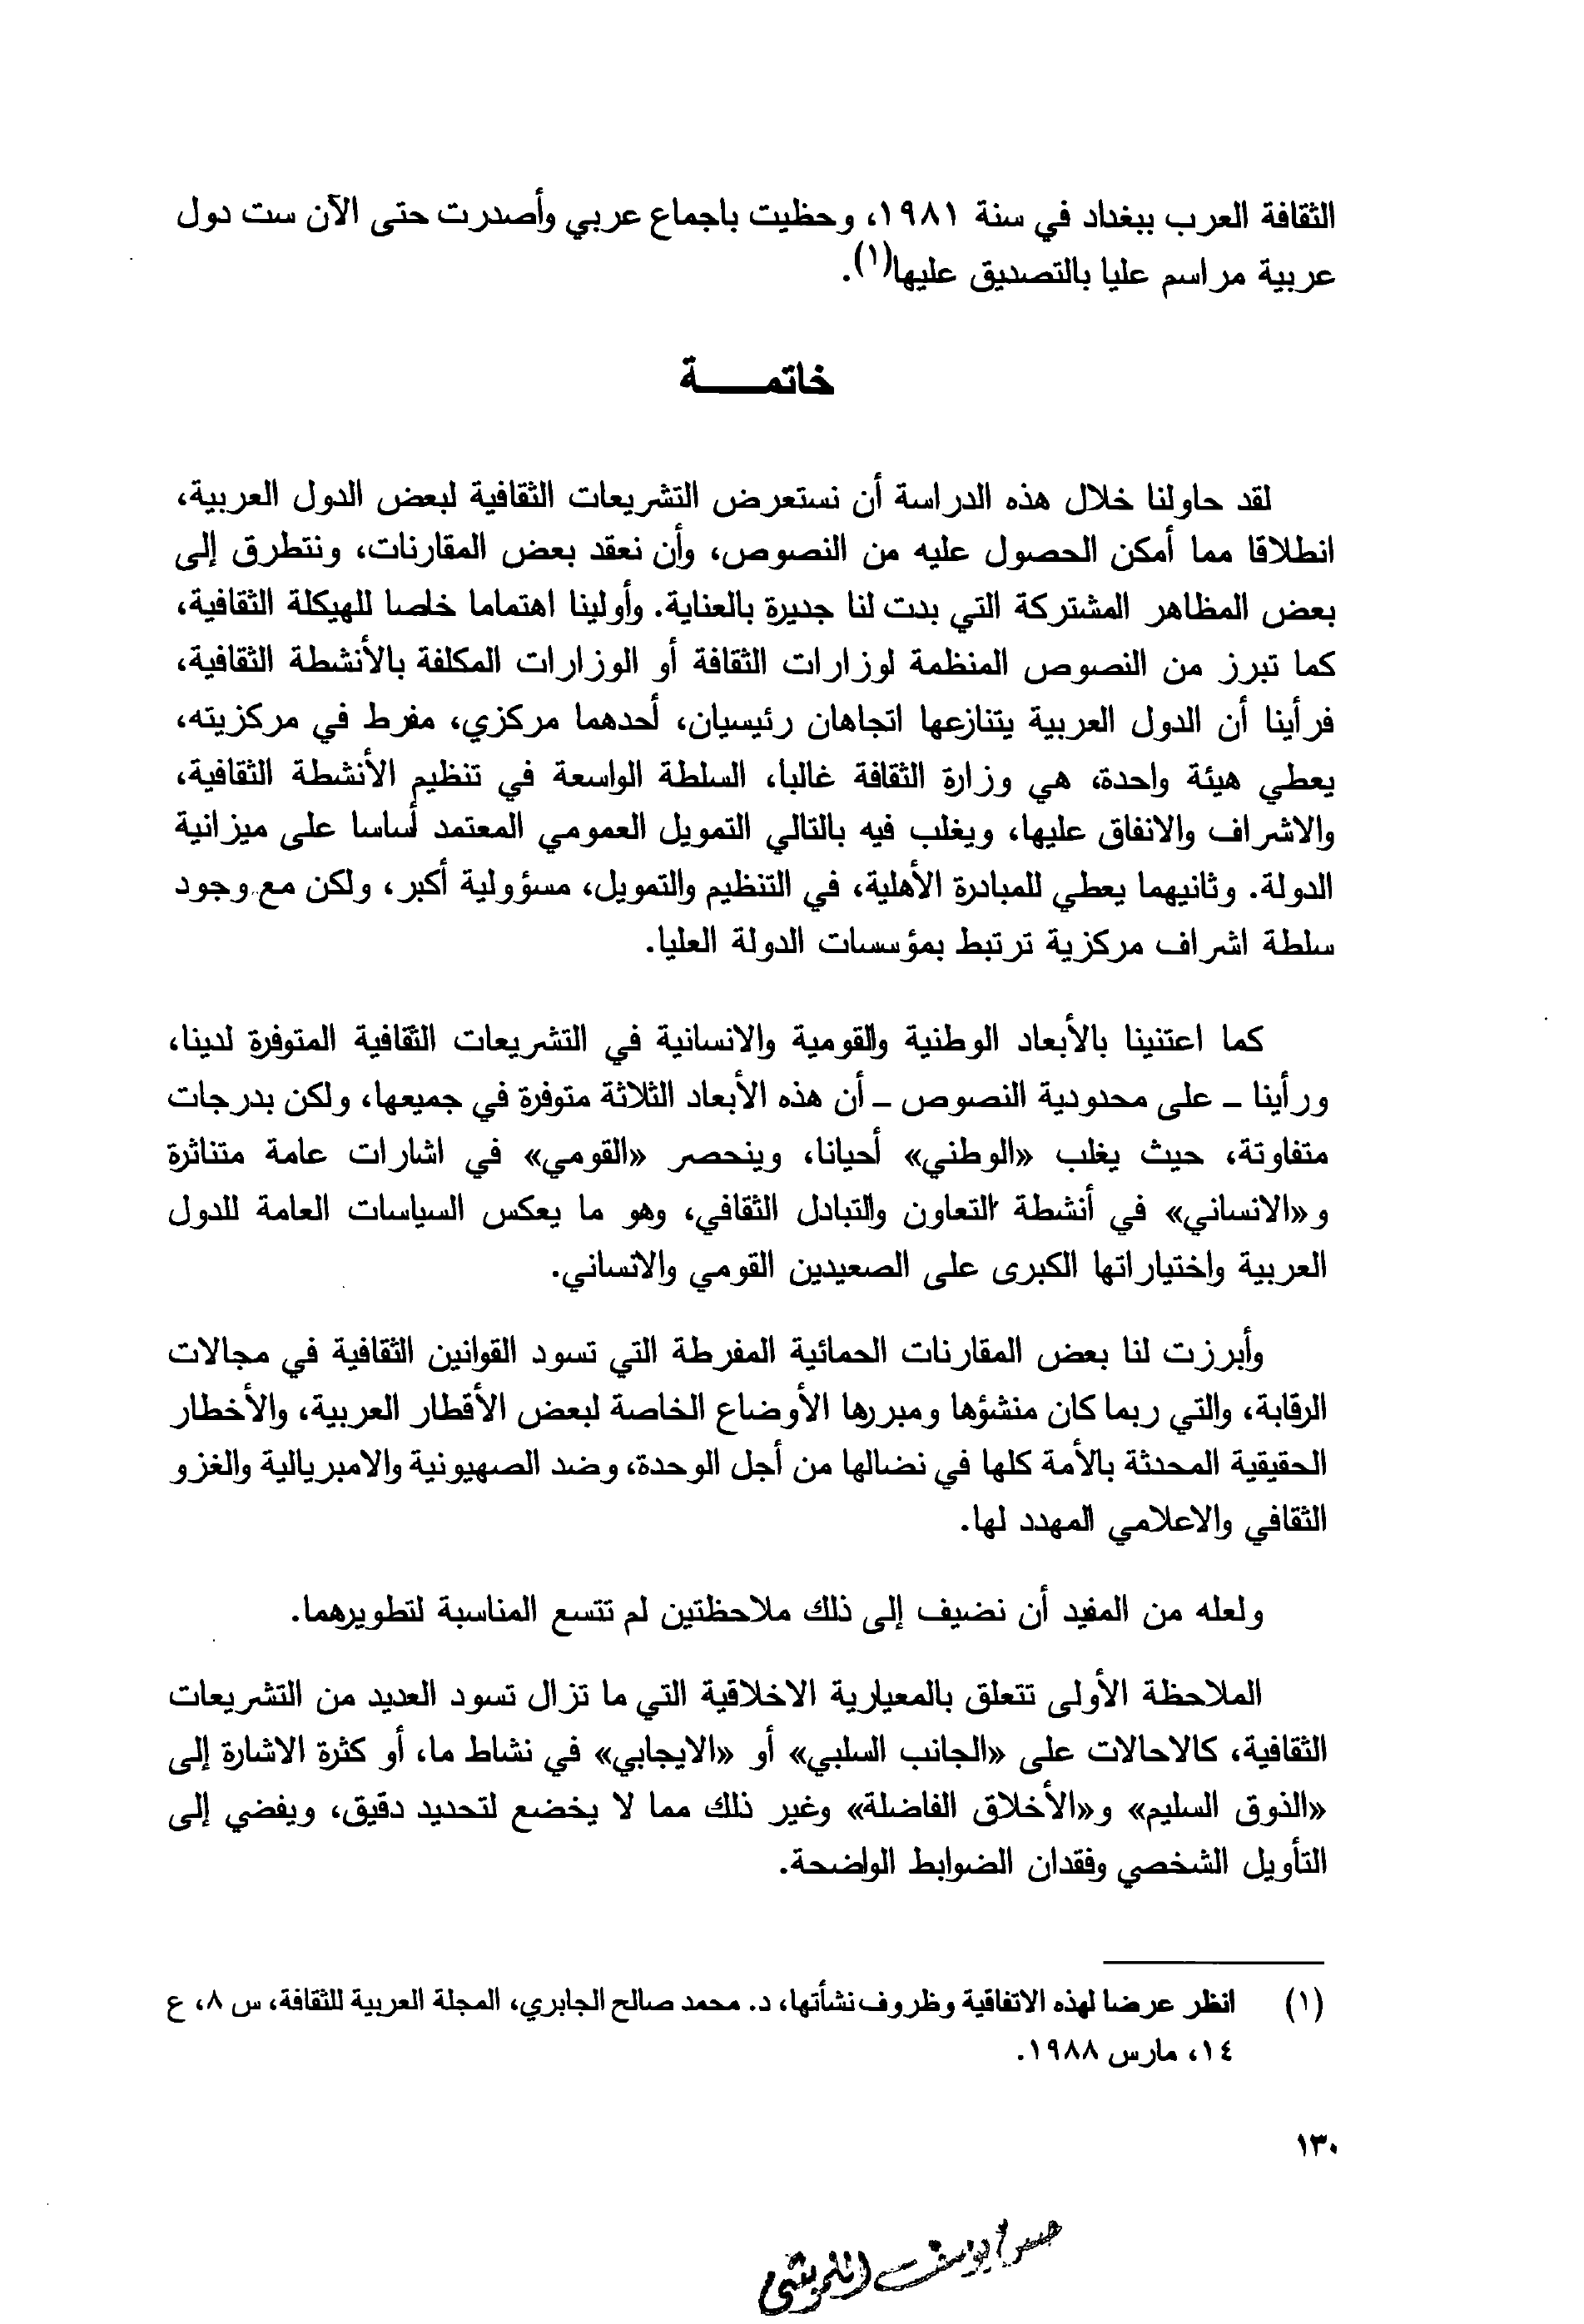 الثقافة العرب ببغداد في سنة ١٩٨١، وحظيت باجماع عربي وأصدرت حتى الآن ست دول
عربية مراسم عليا بالتصديق عليها(١).
خاتمـــــة
لقد حاولنا خلال هذه الدراسة أن نستعرض التشريعات الثقافية لبعض الدول العربية،
انطلاقا مما أمكن الحصول عليه من النصوص، وأن نعقد بعض المقارنات، ونتطرق إلى
بعض المظاهر المشتركة التي بدت لنا جديرة بالعناية. وأولينا اهتماما خاصا للهيكلة الثقافية،
كما تبرز من النصوص المنظمة لوزارات الثقافة أو الوزارات المكلفة بالأنشطة الثقافية،
فرأينا أن الدول العربية يتنازعها اتجاهان رئيسيان، أحدهما مركزي، مفرط في مركزيته،
يعطي هيئة واحدة، هي وزارة الثقافة غالبا، السلطة الواسعة في تنظيم الأنشطة الثقافية،
والاشراف والانفاق عليها، ويغلب فيه بالتالي التمويل العمومي المعتمد أساسا على ميزانية
الدولة. وثانيهما يعطي للمبادرة الأهلية، في التنظيم والتمويل، مسؤولية أكبر، ولكن مع وجود
سلطة اشراف مركزية ترتبط بمؤسسات الدولة العليا.
كما اعتنينا بالأبعاد الوطنية والقومية والانسانية في التشريعات الثقافية المتوفرة لدينا،
ورأينا ـ على محدودية النصوص ـ أن هذه الأبعاد الثلاثة متوفرة في جميعها، ولكن بدرجات
متفاوتة، حيث يغلب «الوطني» أحيانا، وينحصر «القومي» في اشارات عامة متناثرة
و«الانساني» في أنشطة التعاون والتبادل الثقافي، وهو ما يعكس السياسات العامة للدول
العربية واختياراتها الكبرى على الصعيدين القومي والانساني.
وأبرزت لنا بعض المقارنات الحمائية المفرطة التي تسود القوانين الثقافية في مجالات
الرقابة، والتي ربما كان منشؤها ومبررها الأوضاع الخاصة لبعض الأقطار العربية، والأخطار
الحقيقية المحدثة بالأمة كلها في نضالها من أجل الوحدة، وضد الصهيونية والامبريالية والغزو
الثقافي والاعلامي المهدد لها.
ولعله من المفيد أن نضيف إلى ذلك ملاحظتين لم تتسع المناسبة لتطويرهما.
الملاحظة الأولى تتعلق بالمعيارية الاخلاقية التي ما تزال تسود العديد من التشريعات
الثقافية، كالاحالات على «الجانب السلبي» أو «الايجابي» في نشاط ما، أو كثرة الاشارة إلى
«الذوق السليم» و«الأخلاق الفاضلة» وغير ذلك مما لا يخضع لتحديد دقيق، ويفضي إلى
التأويل الشخصي وفقدان الضوابط الواضحة.
(١) انظر عرضا لهذه الاتفاقية وظروف نشأتها، د. محمد صالح الجابري، المجلة العربية للثقافة، س ٨، ع
١٤، مارس ١٩٨٨.
١٣٠